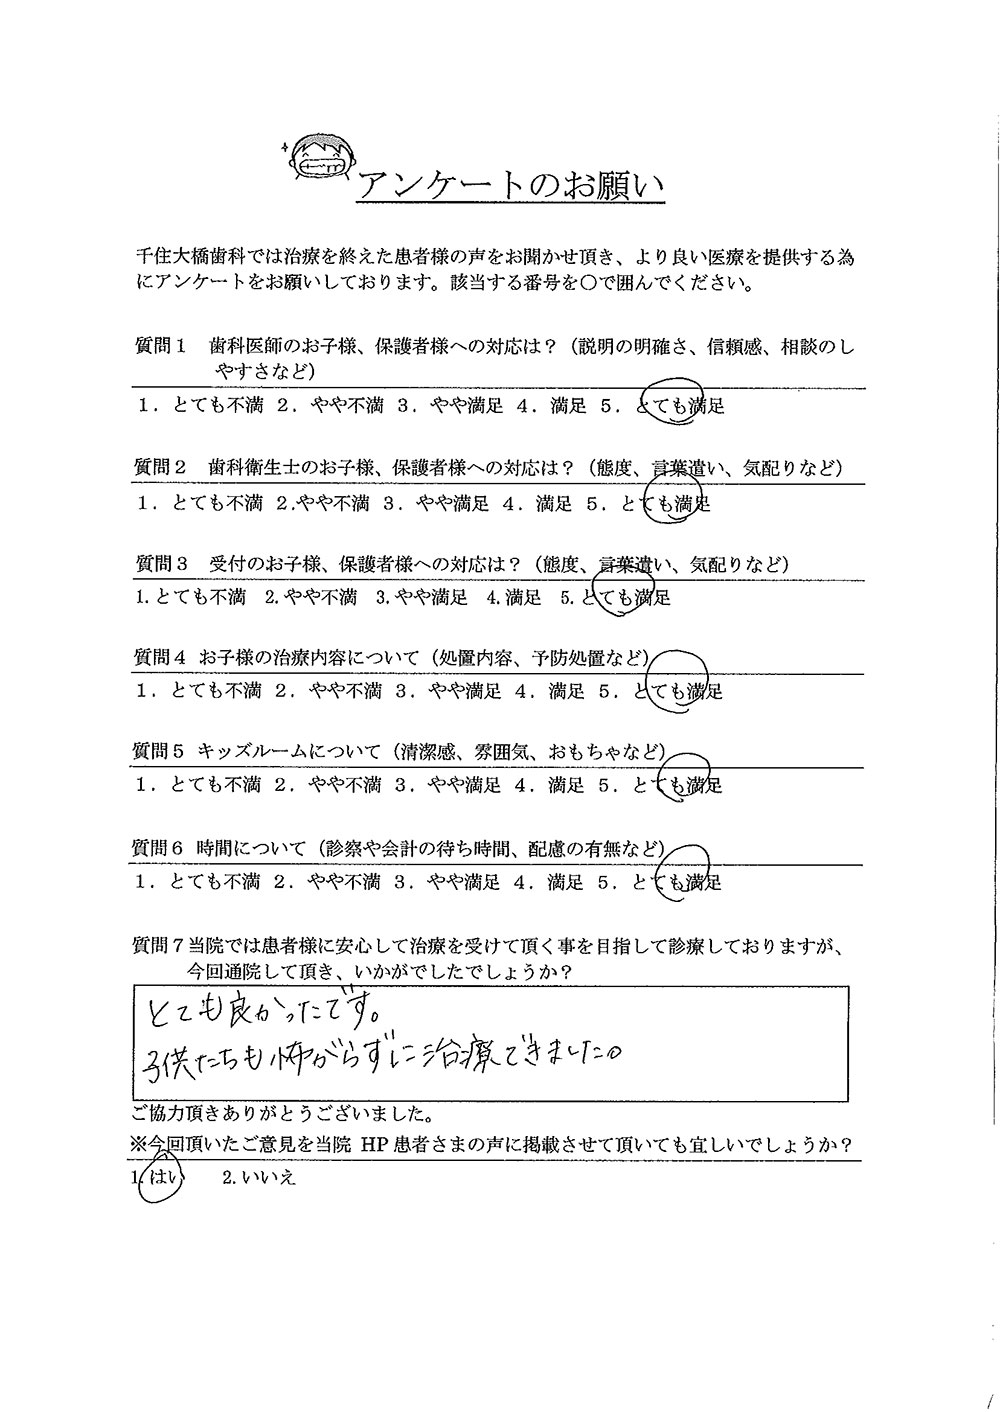 アンケートのお願い
千住大橋歯科では治療を終えた患者様の声をお聞かせ頂き、より良い医療を提供する為
にアンケートをお願いしております。該当する番号を○で囲んでください。
質問1 歯科医師のお子様、保護者様への対応は？（説明の明確さ、信頼感、相談のし
やすさなど）
1．とても不満 2．やや不満 3．やや満足 4．満足 5．とても満足
質問2 歯科衛生士のお子様、保護者様への対応は？（態度、言葉遣い、気配りなど）
1．とても不満 2.やや不満 3．やや満足 4．満足 5．とても満足
質問3 受付のお子様、保護者様への対応は？（態度、言葉遣い、気配りなど）
1.とても不満 2.やや不満 3.やや満足 4.満足 5.とても満足
質問4 お子様の治療内容について（処置内容、予防処置など）
1．とても不満 2．やや不満 3．やや満足 4．満足 5．とても満足
質問5 キッズルームについて（清潔感、雰囲気、おもちゃなど）
1．とても不満 2．やや不満 3．やや満足 4．満足 5．とても満足
質問6 時間について（診察や会計の待ち時間、配慮の有無など）
1．とても不満 2．やや不満 3．やや満足 4．満足 5．とても満足
質問7当院では患者様に安心して治療を受けて頂く事を目指して診療しておりますが、
今回通院して頂き、いかがでしたでしょうか？
とても良かったです。
子供たちも怖がらずに治療できました。
ご協力頂きありがとうございました。
※今回頂いたご意見を当院 HP 患者さまの声に掲載させて頂いても宜しいでしょうか？
1.はい 2.いいえ